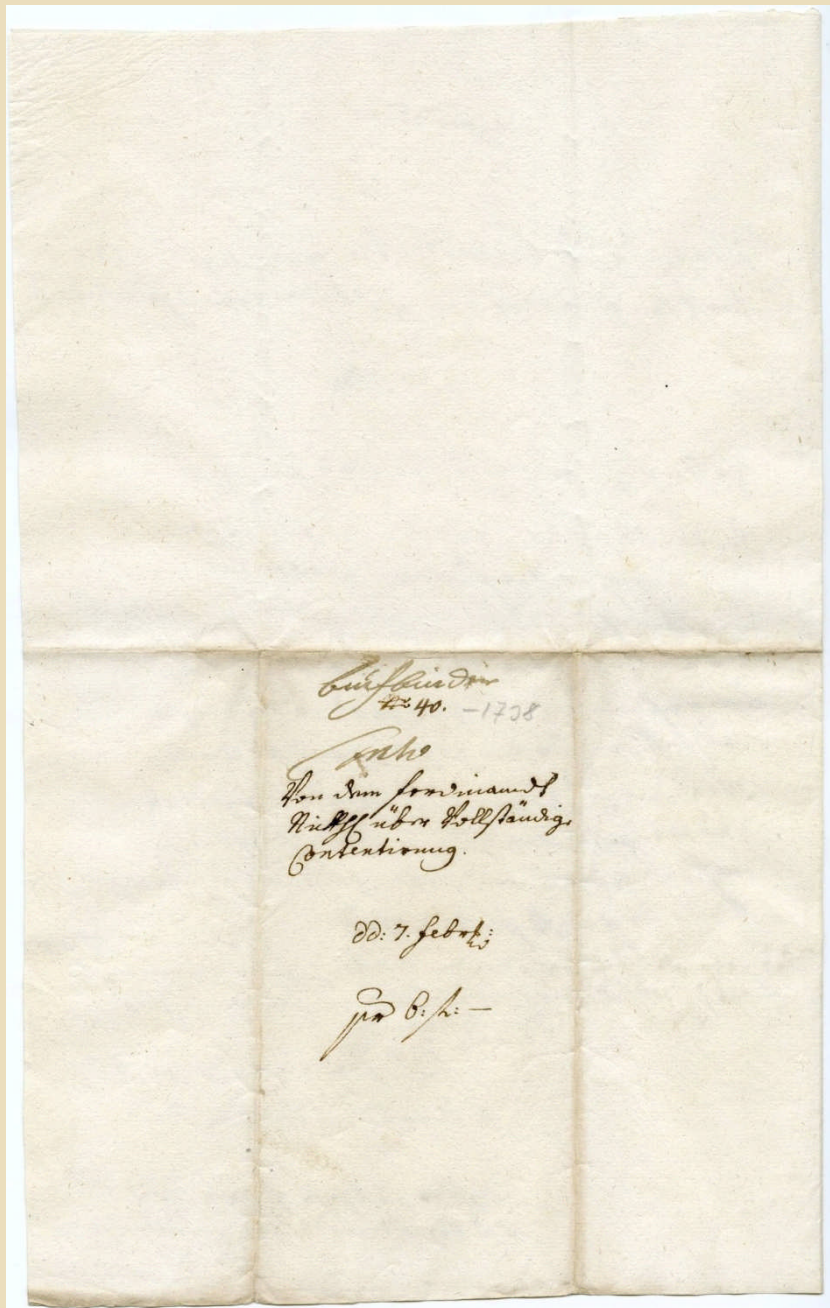 buchbinder
No 40. – 1738
Conto
Von dem Ferdinandt
über Vollständige
Contentirung.
dd: 7. Febr:
pr 6: f: —